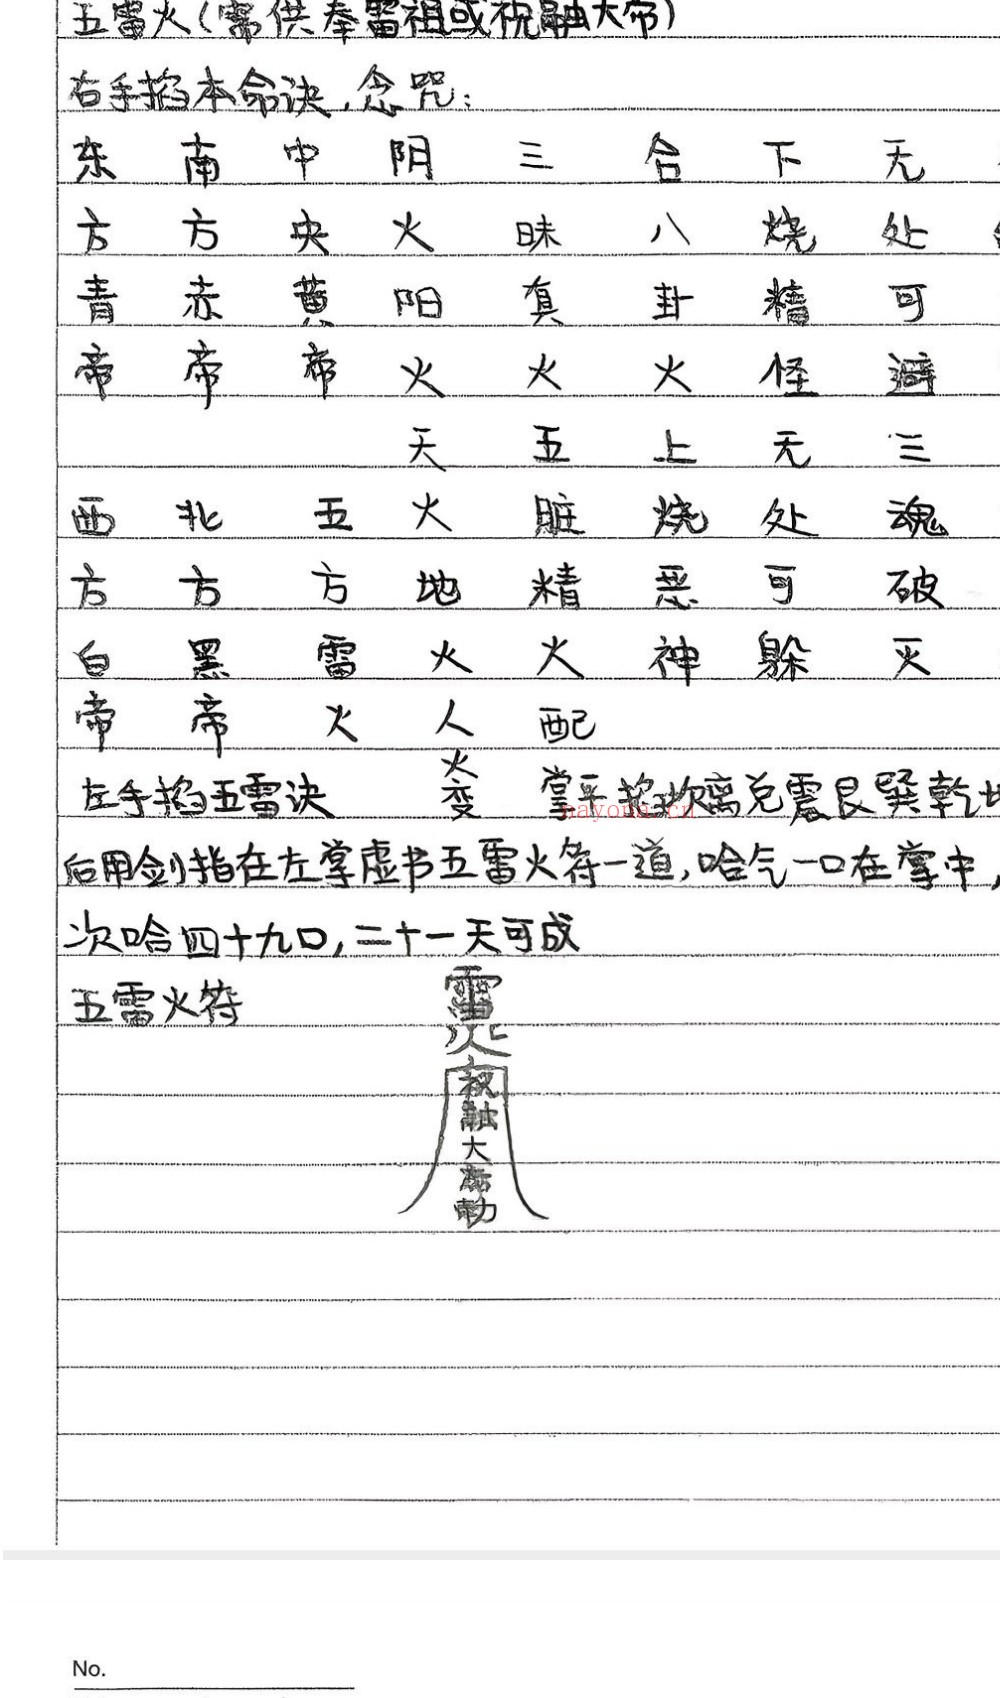 五雷火(需供奉雷祖或祝融大帝)
右手掐本命诀,念咒:
东 南 中 阴 三 合 下 无
方 方 央 火 昧 八 烧 处
青 赤 黄 阳 真 卦 精 可
帝 帝 帝 火 火 火 怪 避
天 五 上 无 三
西 北 五 火 脏 烧 处 魂
方 方 方 地 精 恶 可 破
白 黑 雷 火 火 神 躲 灭
帝 帝 火 人 配
火
左手掐五雷诀 变 掌手掐坎离兑震艮巽乾
nayona.cn
后用剑指在左掌虚书五雷火符一道,哈气一口在掌中,
次哈四十九口,二十一天可成
五雷火符
雷
火
祝
融
大
帝
勅
No.